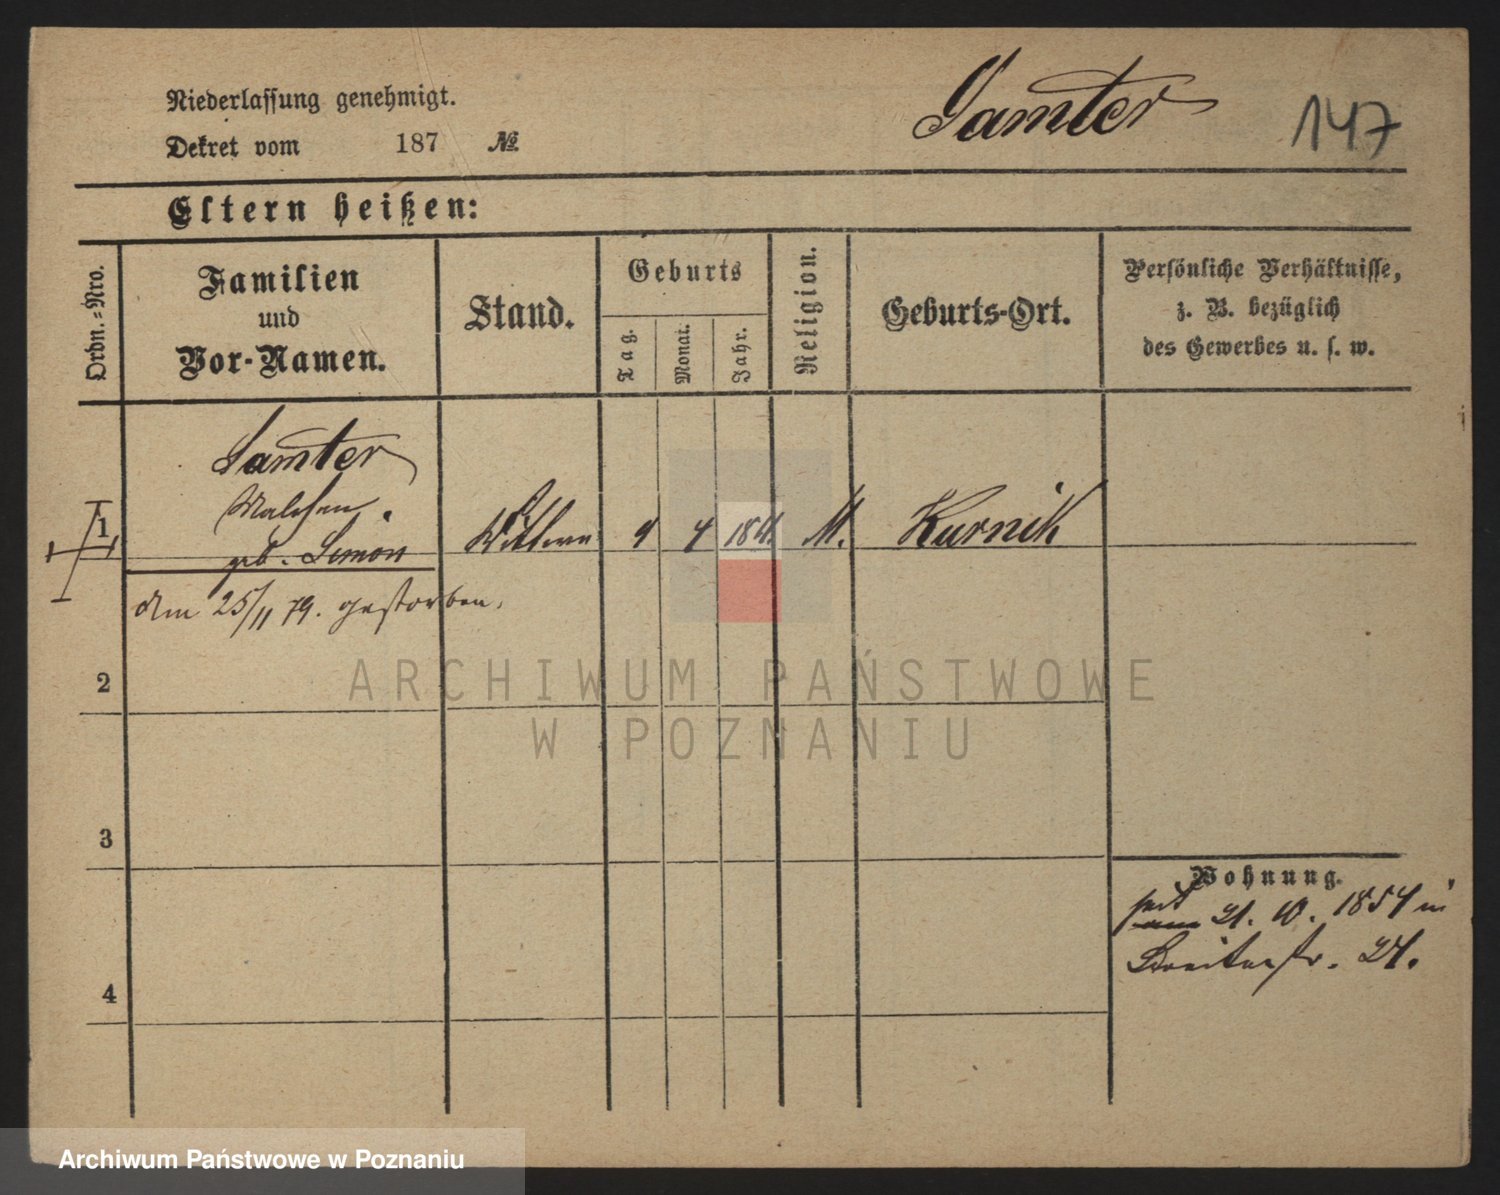 Niederlassung genehmigt.
Samter
147
Dekret vom 187 №
Eltern heißen:
Ordn.-Nro.
Familien
und
Vor-Namen.
Stand.
Geburts
Tag.
Monat.
Jahr.
Religion.
Geburts-Ort.
Persönliche Verhältnisse,
z. B. bezüglich
des Gewerbes u. s. w.
Samter
Malchen
1
geb. Simon
4
M.
Kurnik
den 25/11 79. gestorben.
2
ARCHIWUM PAŃSTWOWE
W POZNANIU
3
Wohnung.
seit
in
Breitestr. 21.
4
Archiwum Państwowe w Poznaniu